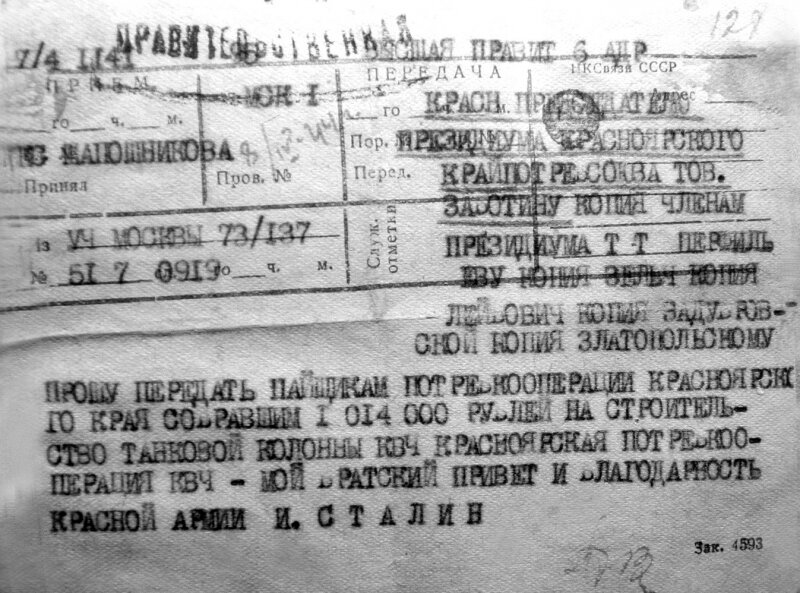 128
ПРАВИТЕЛЬСТВЕННАЯ
7/4 1141 ВЫСШАЯ ПРАВИТ 6 АДР
ПРИЕМ ПЕРЕДАЧА НКСвязи СССР
МСК I Адрес
го ч. м. го КРАСН. ПРЕДСЕДАТЕЛЮ
ШАПОШНИКОВА Пор. ПРЕЗИДИУМА КРАСНОЯРСКОГО
Принял Пров. № Перед. КРАЙПОТРЕБСОЮЗА ТОВ.
Служ. отметки ЗАБОТИНУ КОПИЯ ЧЛЕНАМ
Из УЧ МОСКВЫ 73/137 ПРЕЗИДИУМА Т Т ПЕРФИЛЬ
№ 51 7 0919 го ч. м. ЕВУ КОПИЯ ЗЕЛЬЧ КОПИЯ
ЛЕЙБОВИЧ КОПИЯ ЗАДУБРОВ-
СКОЙ КОПИЯ ЗЛАТОПОЛЬСКОМУ
ПРОШУ ПЕРЕДАТЬ ПАЙЩИКАМ ПОТРЕБКООПЕРАЦИИ КРАСНОЯРСКО
ГО КРАЯ СОБРАВШИМ I 014 000 РУБЛЕЙ НА СТРОИТЕЛЬ-
СТВО ТАНКОВОЙ КОЛОННЫ КВЧ КРАСНОЯРСКАЯ ПОТРЕБКОО-
ПЕРАЦИЯ КВЧ - МОЙ БРАТСКИЙ ПРИВЕТ И БЛАГОДАРНОСТЬ
КРАСНОЙ АРМИИ И. СТАЛИН
Зак. 4593